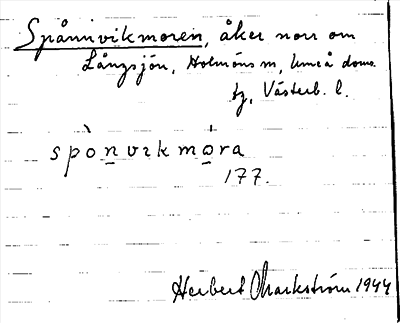 Spånnvikmoren, åker norr om
Långsjön, Holmöns sn, Umeå doms.
tg, Västerb. l.
spònvɪkmo̲ra
177.
Herbert Markström 1944